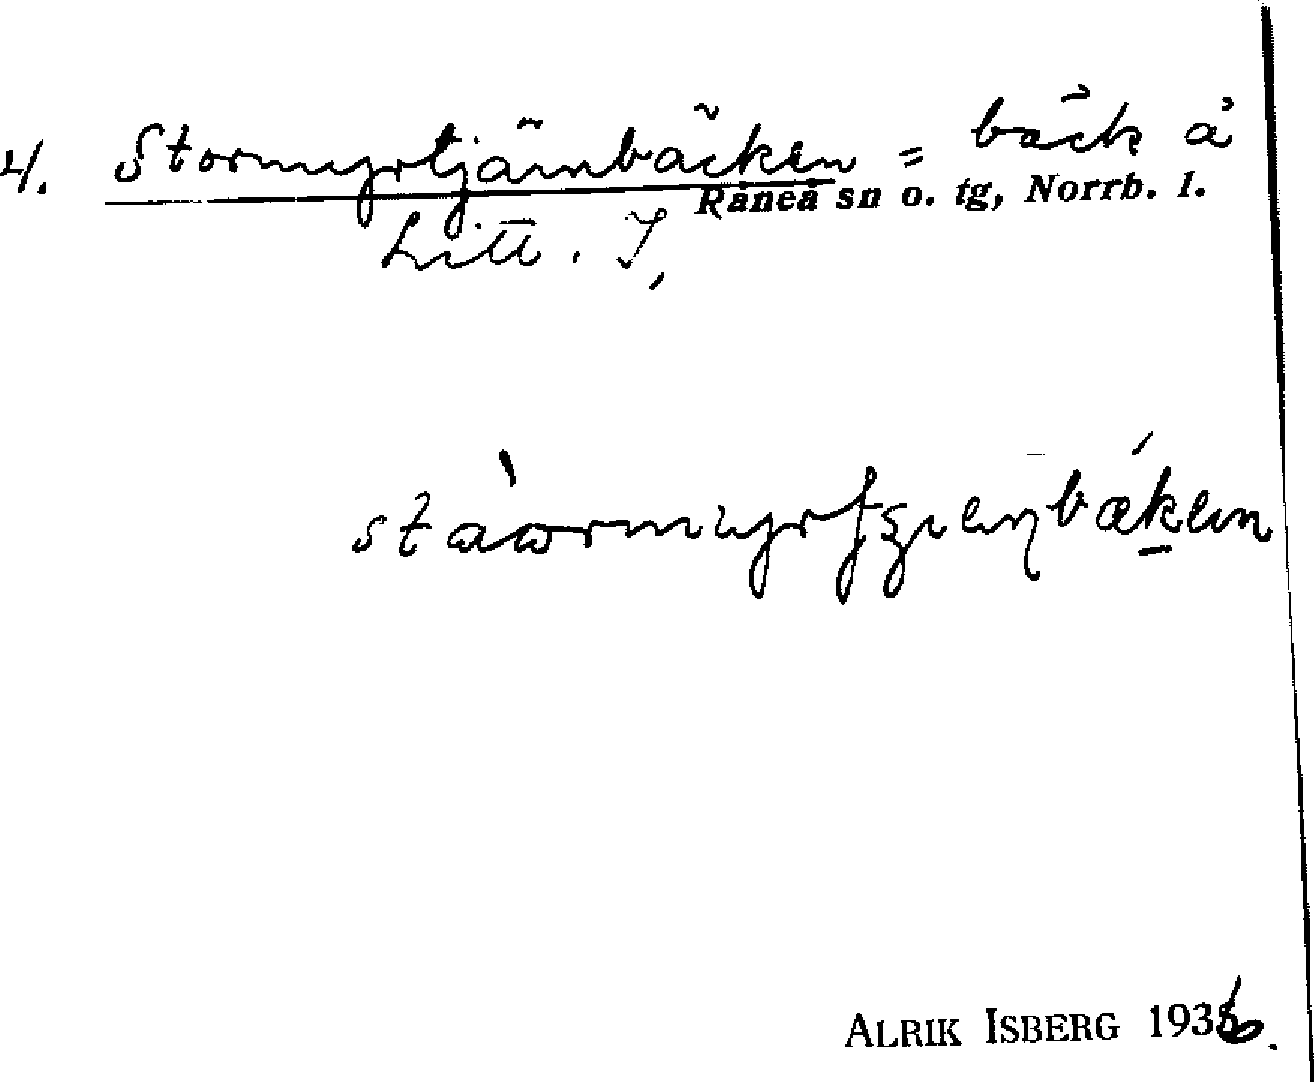 4. Stormyrtjärnbäcken = bäck å
Råneå sn o. tg, Norrb. l.
Litt. I,
ALRIK ISBERG 1936.